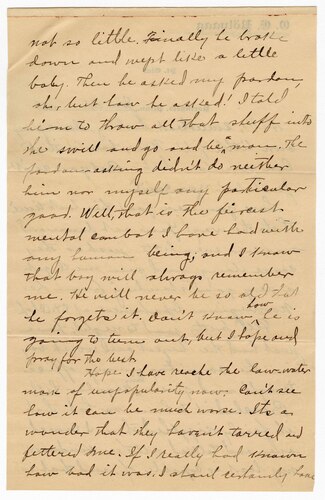 not so little. Finally he broke
down and wept like a little
baby. Then he asked my pardon,
oh, but how he asked! I told
him to throw all that stuff into
the swill and go and be a man. The
pardon-asking didn't do neither
him nor myself any particular
good. Well, that is the fiercest
mental combat I have had with
any human being, and I know
that boy will always remember
me. He will never be so old that
he forgets it. Don't know how he is
going to turn out, but I hope and
pray for the best.
Hope I have reache the low-water
mark of unpopularity now. Can't see
how it can be much worse. It's a
wonder that they haven't tarred and
fettered me. If I really had known
how bad it was. I shant certainly have